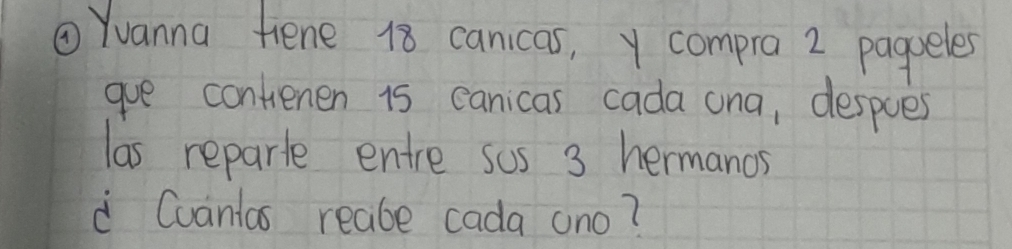 ① Yvanna tiene 18 canicas, y compra 2 paquetes
que contienen 15 canicas cada una, despues
las reparte entre sus 3 hermanos
¿ Cuántas recibe cada uno?